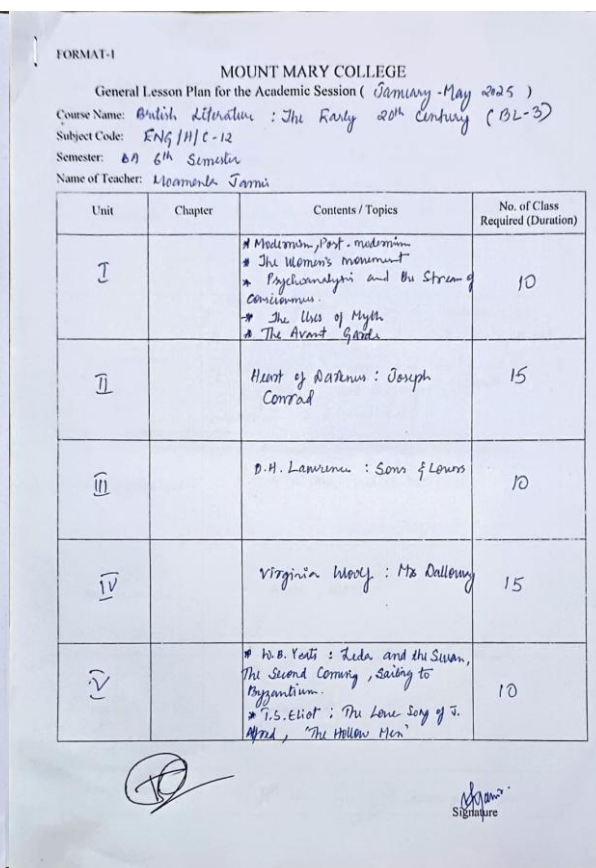 FORMAT-I
MOUNT MARY COLLEGE
General Lesson Plan for the Academic Session ( January - May 2025 )
Course Name: British Literature : The Early 20th Century (BL-3)
Subject Code: ENG/H/C-12
Semester: BA 6th Semester
Name of Teacher: Moamenla Jamir
Unit Chapter Contents / Topics No. of Class
Required (Duration)
* Modernism, Post-modernism
* The Women's movement
I * Psychoanalysis and the Stream of 10
consciousness.
* The Uses of Myth
* The Avant Garde
II Heart of Darkness : Joseph 15
Conrad
III D.H. Lawrence : Sons & Lovers 10
IV Virginia Woolf : Mrs Dalloway 15
* W.B. Yeats : Leda and the Swan,
The Second Coming, Sailing to
V Byzantium. 10
* T.S. Eliot : The Love Song of J.
Alfred, "The Hollow Men"
Signature